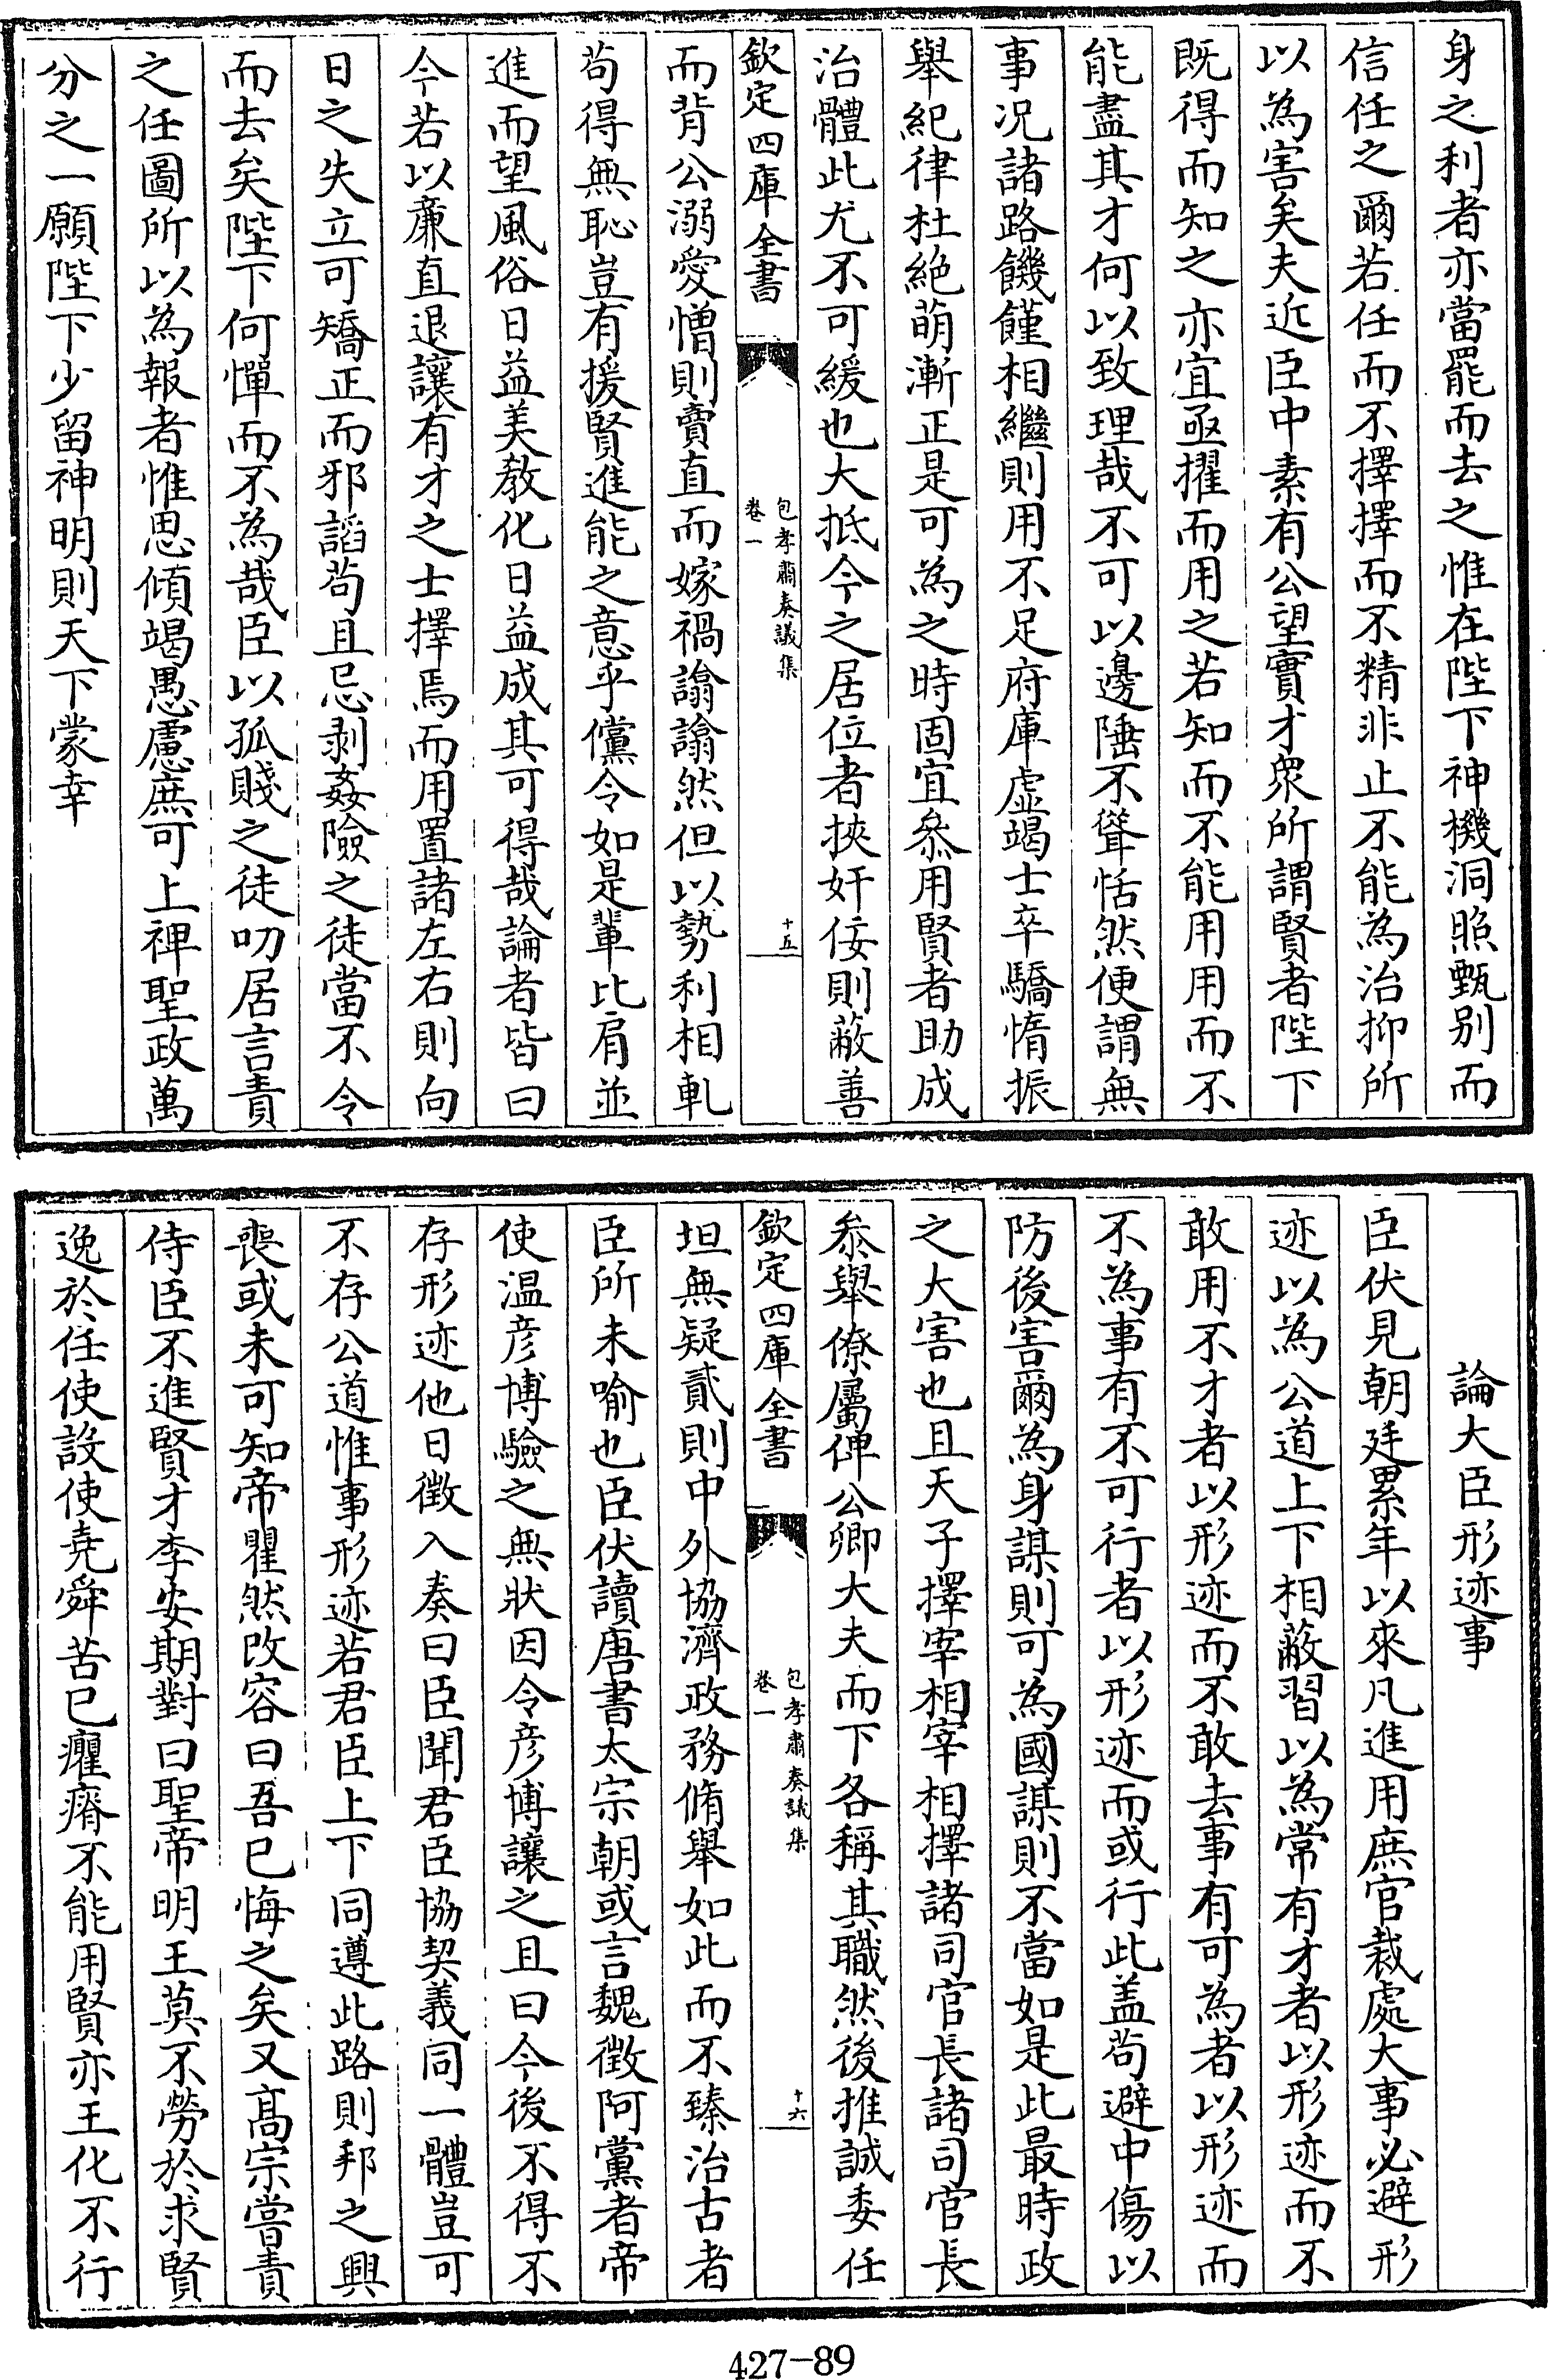 身之利者亦當罷而去之惟在陛下神機洞照甄别而
信任之爾若任而不擇擇而不精非止不能為治抑所
以為害矣夫近臣中素有公望實才衆所謂賢者陛下
既得而知之亦宜亟擢而用之若知而不能用用而不
能盡其才何以致理哉不可以邊陲不聳恬然便謂無
事况諸路饑饉相繼則用不足府庫虚竭士卒驕惰振
舉紀律杜絶萌漸正是可為之時固宜叅用賢者助成
治體此尤不可緩也大抵今之居位者挾奸佞則蔽善
欽定四庫全書
包孝肅奏議集
卷一
十五
而背公溺愛憎則賣直而嫁禍諭諭然但以勢利相軋
苟得無恥豈有援賢進能之意乎儻令如是輩比肩並
進而望風俗日益美教化日益成其可得哉論者皆曰
今若以亷直退讓有才之士擇焉而用置諸左右則向
日之失立可矯正而邪謟苟且忌剥姦險之徒當不令
而去矣陛下何憚而不為哉臣以孤賤之徒叨居言責
之任圖所以為報者惟思傾竭愚慮庶可上裨聖政萬
分之一願陛下少留神明則天下蒙幸
論大臣形迹事
臣伏見朝廷累年以來凡進用庶官裁處大事必避形
迹以為公道上下相蔽習以為常有才者以形迹而不
敢用不才者以形迹而不敢去事有可為者以形迹而
不為事有不可行者以形迹而或行此盖苟避中傷以
防後害爾為身謀則可為國謀則不當如是此最時政
之大害也且天子擇宰相宰相擇諸司官長諸司官長
叅舉僚屬俾公卿大夫而下各稱其職然後推誠委任
欽定四庫全書
包孝肅奏議集
卷一
十六
坦無疑貳則中外協濟政務脩舉如此而不臻治古者
臣所未喻也臣伏讀唐書太宗朝或言魏徵阿黨者帝
使温彦博驗之無狀因令彦博讓之且曰今後不得不
存形迹他日徵入奏曰臣聞君臣協契義同一體豈可
不存公道惟事形迹若君臣上下同遵此路則邦之興
喪或未可知帝瞿然改容曰吾已悔之矣又髙宗嘗責
侍臣不進賢才李安期對曰聖帝明王莫不勞於求賢
逸於任使設使堯舜苦已癯瘠不能用賢亦王化不行
427-89